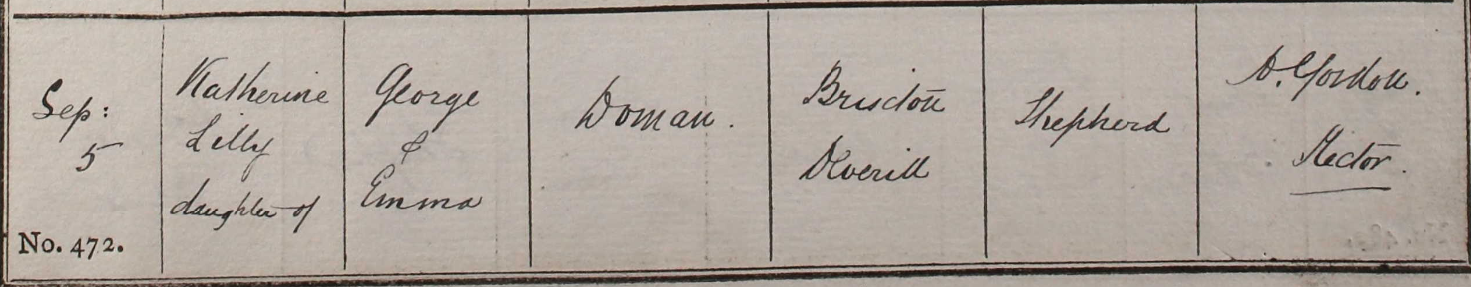 Sep:
5
No. 472.
Katherine
Lilly
daughter of
George
&
Emma
Doman.
Brixton
Deverill
Shepherd
D. Gordon.
Rector.